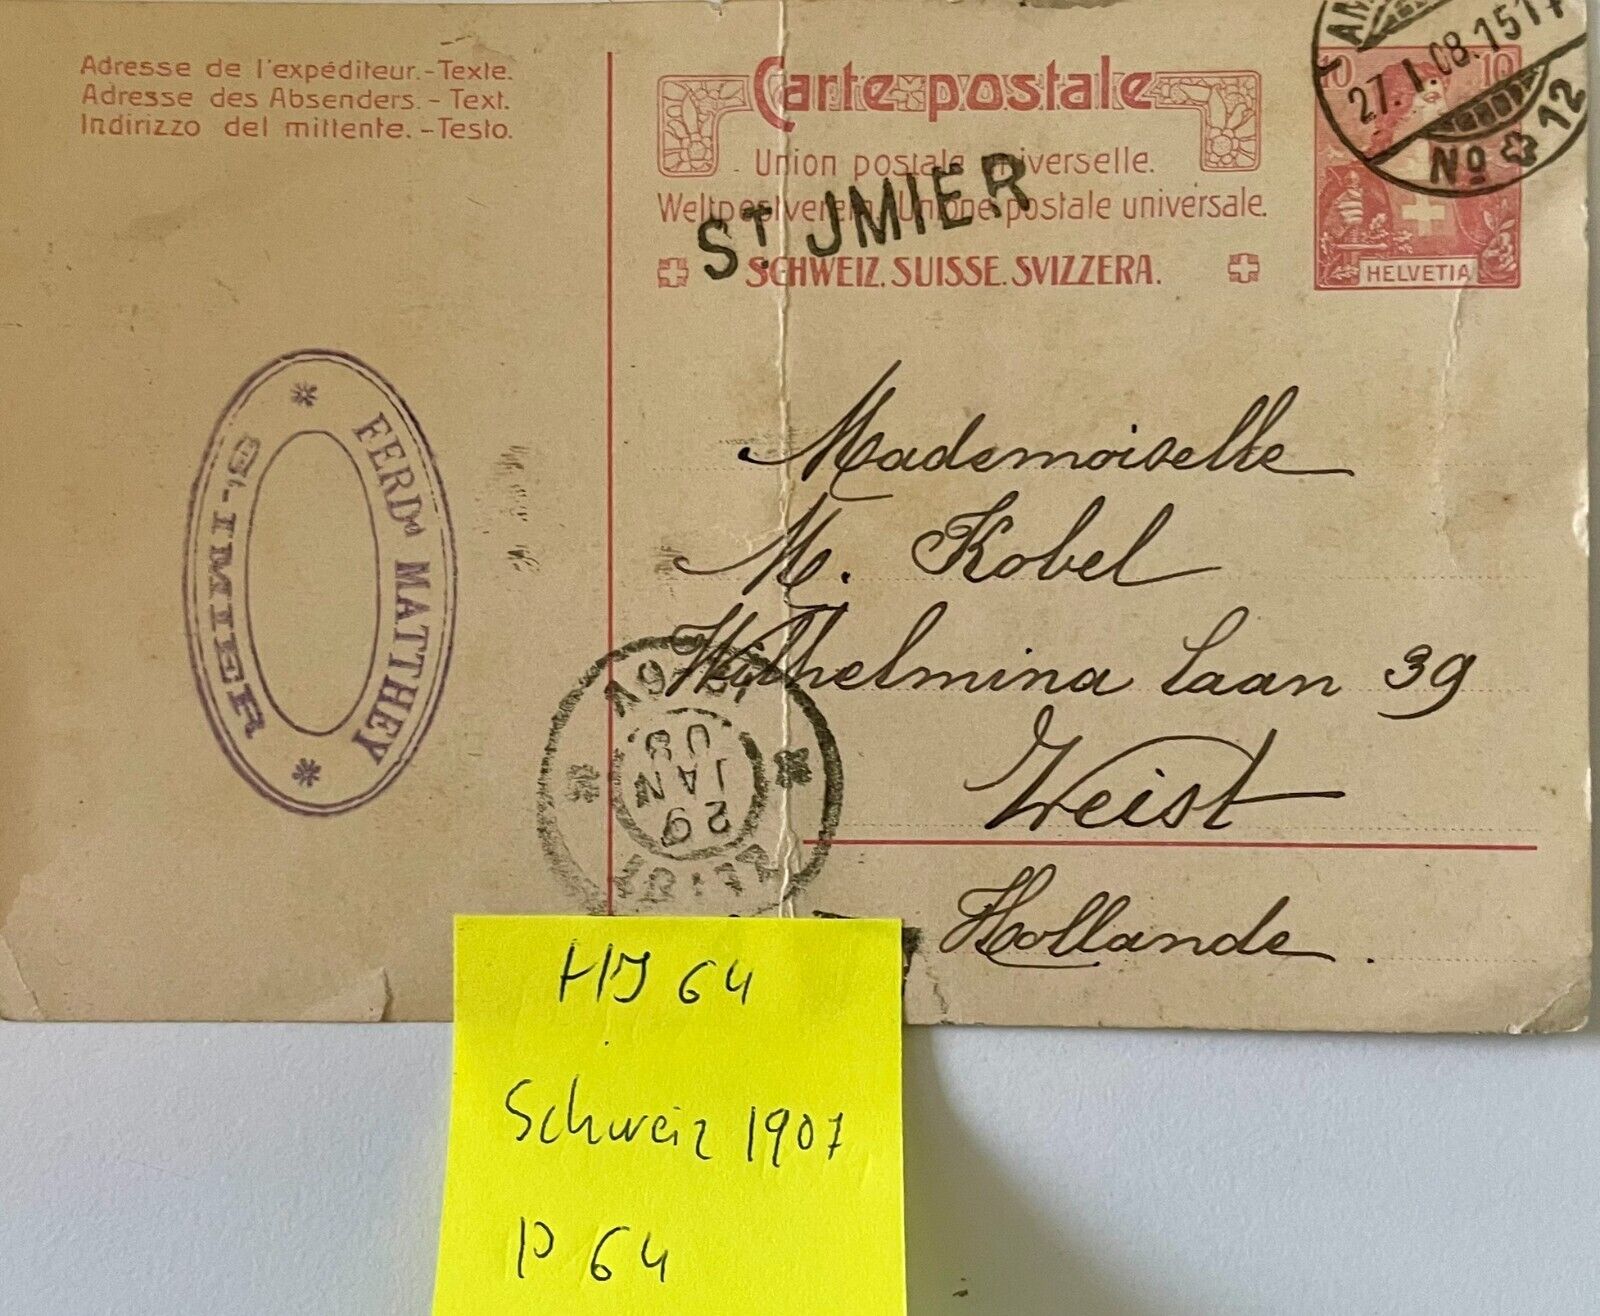 Adresse de l'expéditeur.-Texte.
Adresse des Absenders.-Text.
Indirizzo del mittente.-Testo.
Carte postale
Union postale universelle.
Weltpostverein. Unione postale universale.
SCHWEIZ. SUISSE. SVIZZERA.
ST. JMIER
27.I.08.15
No 12
10 10
HELVETIA
FERDd MATTHEY
St-IMIER
Mademoiselle
M. Kobel
Wilhelmina Laan 39
Zeist
Hollande.
29
JAN
08
HJ 64
Schweiz 1907
P 64